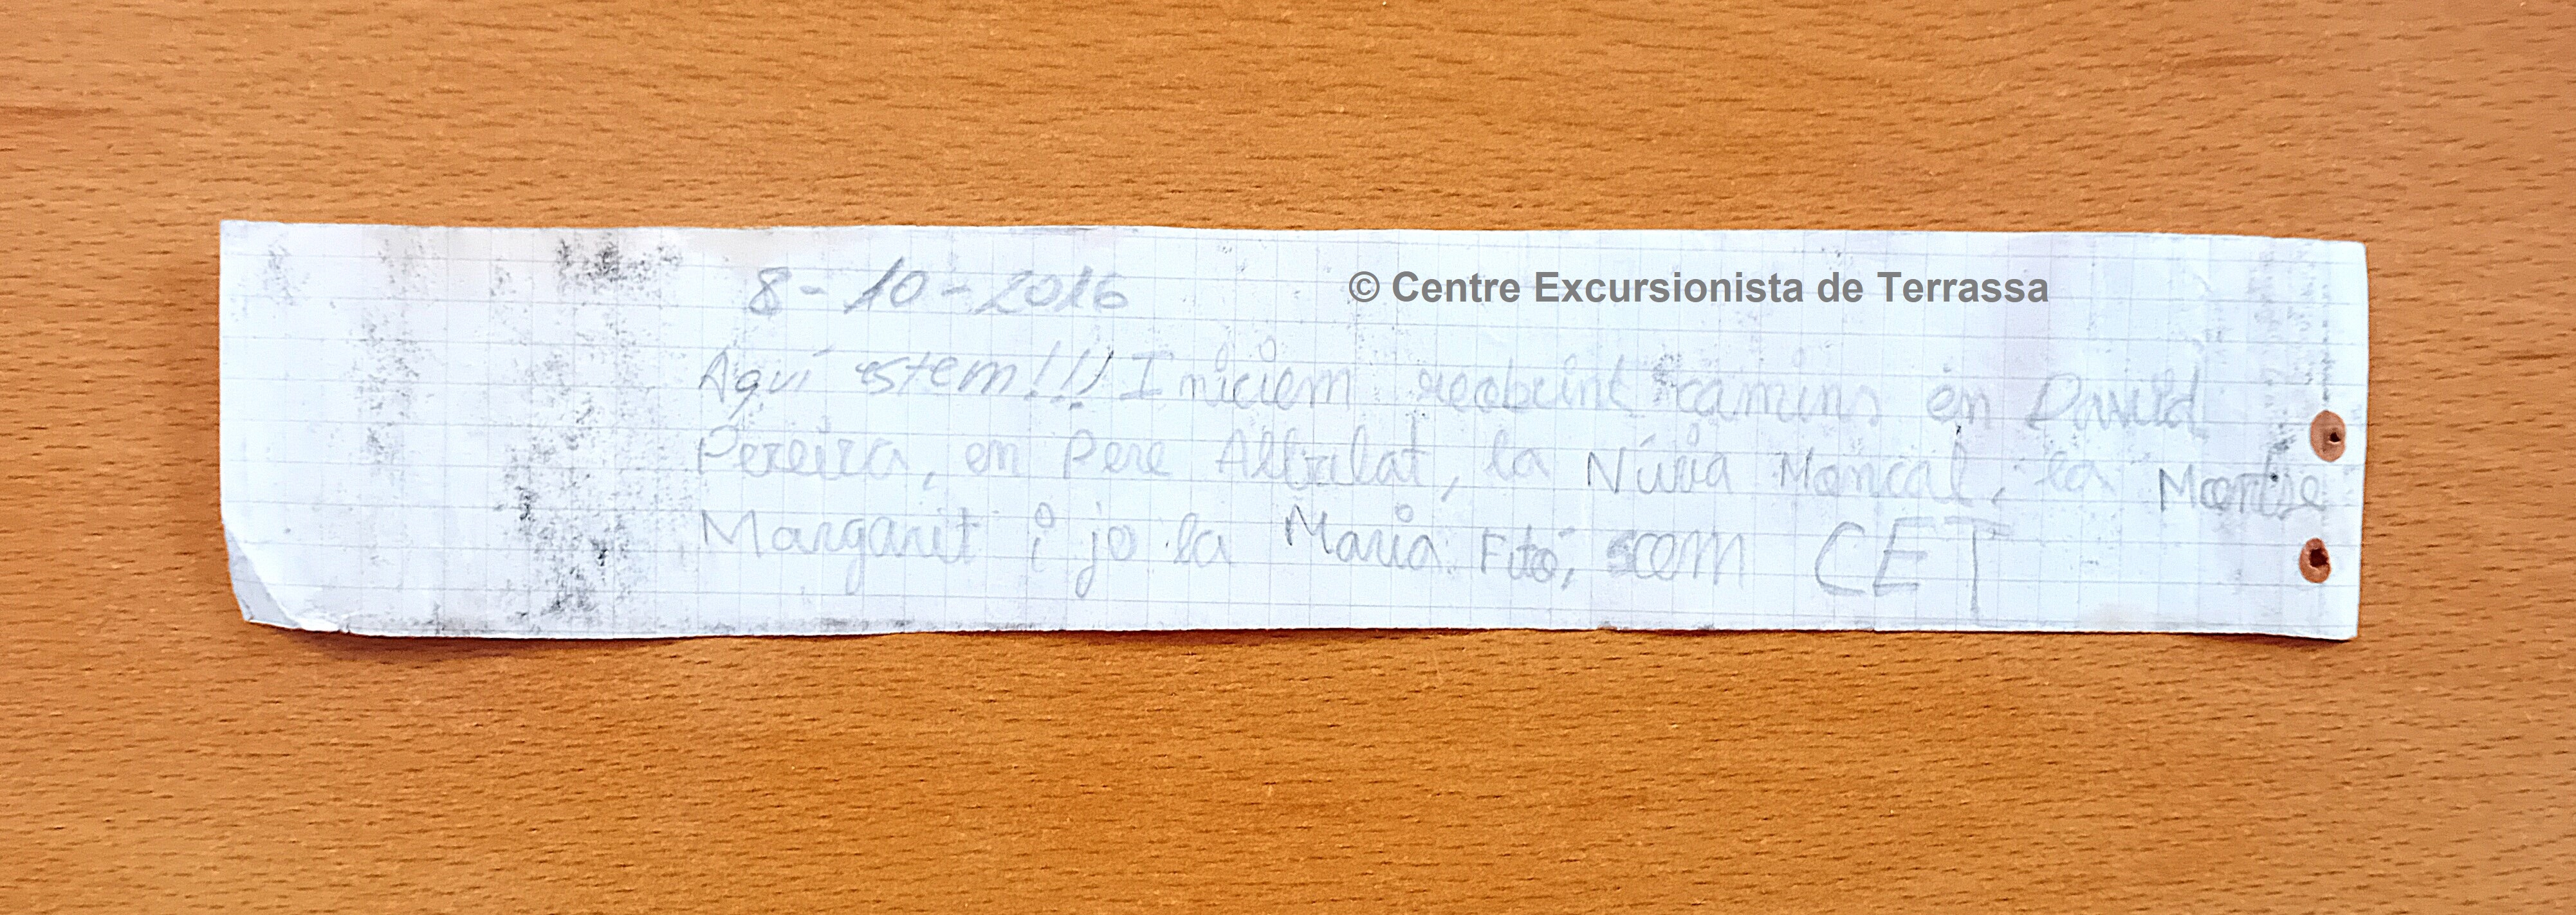 8-10-2016
© Centre Excursionista de Terrassa
Aquí estem!!! Iniciem reobrint camins en David
Pereira, en Pere Albalat, la Núria Moncal, la Montse
Margarit i jo la Maria Fitó, som CET